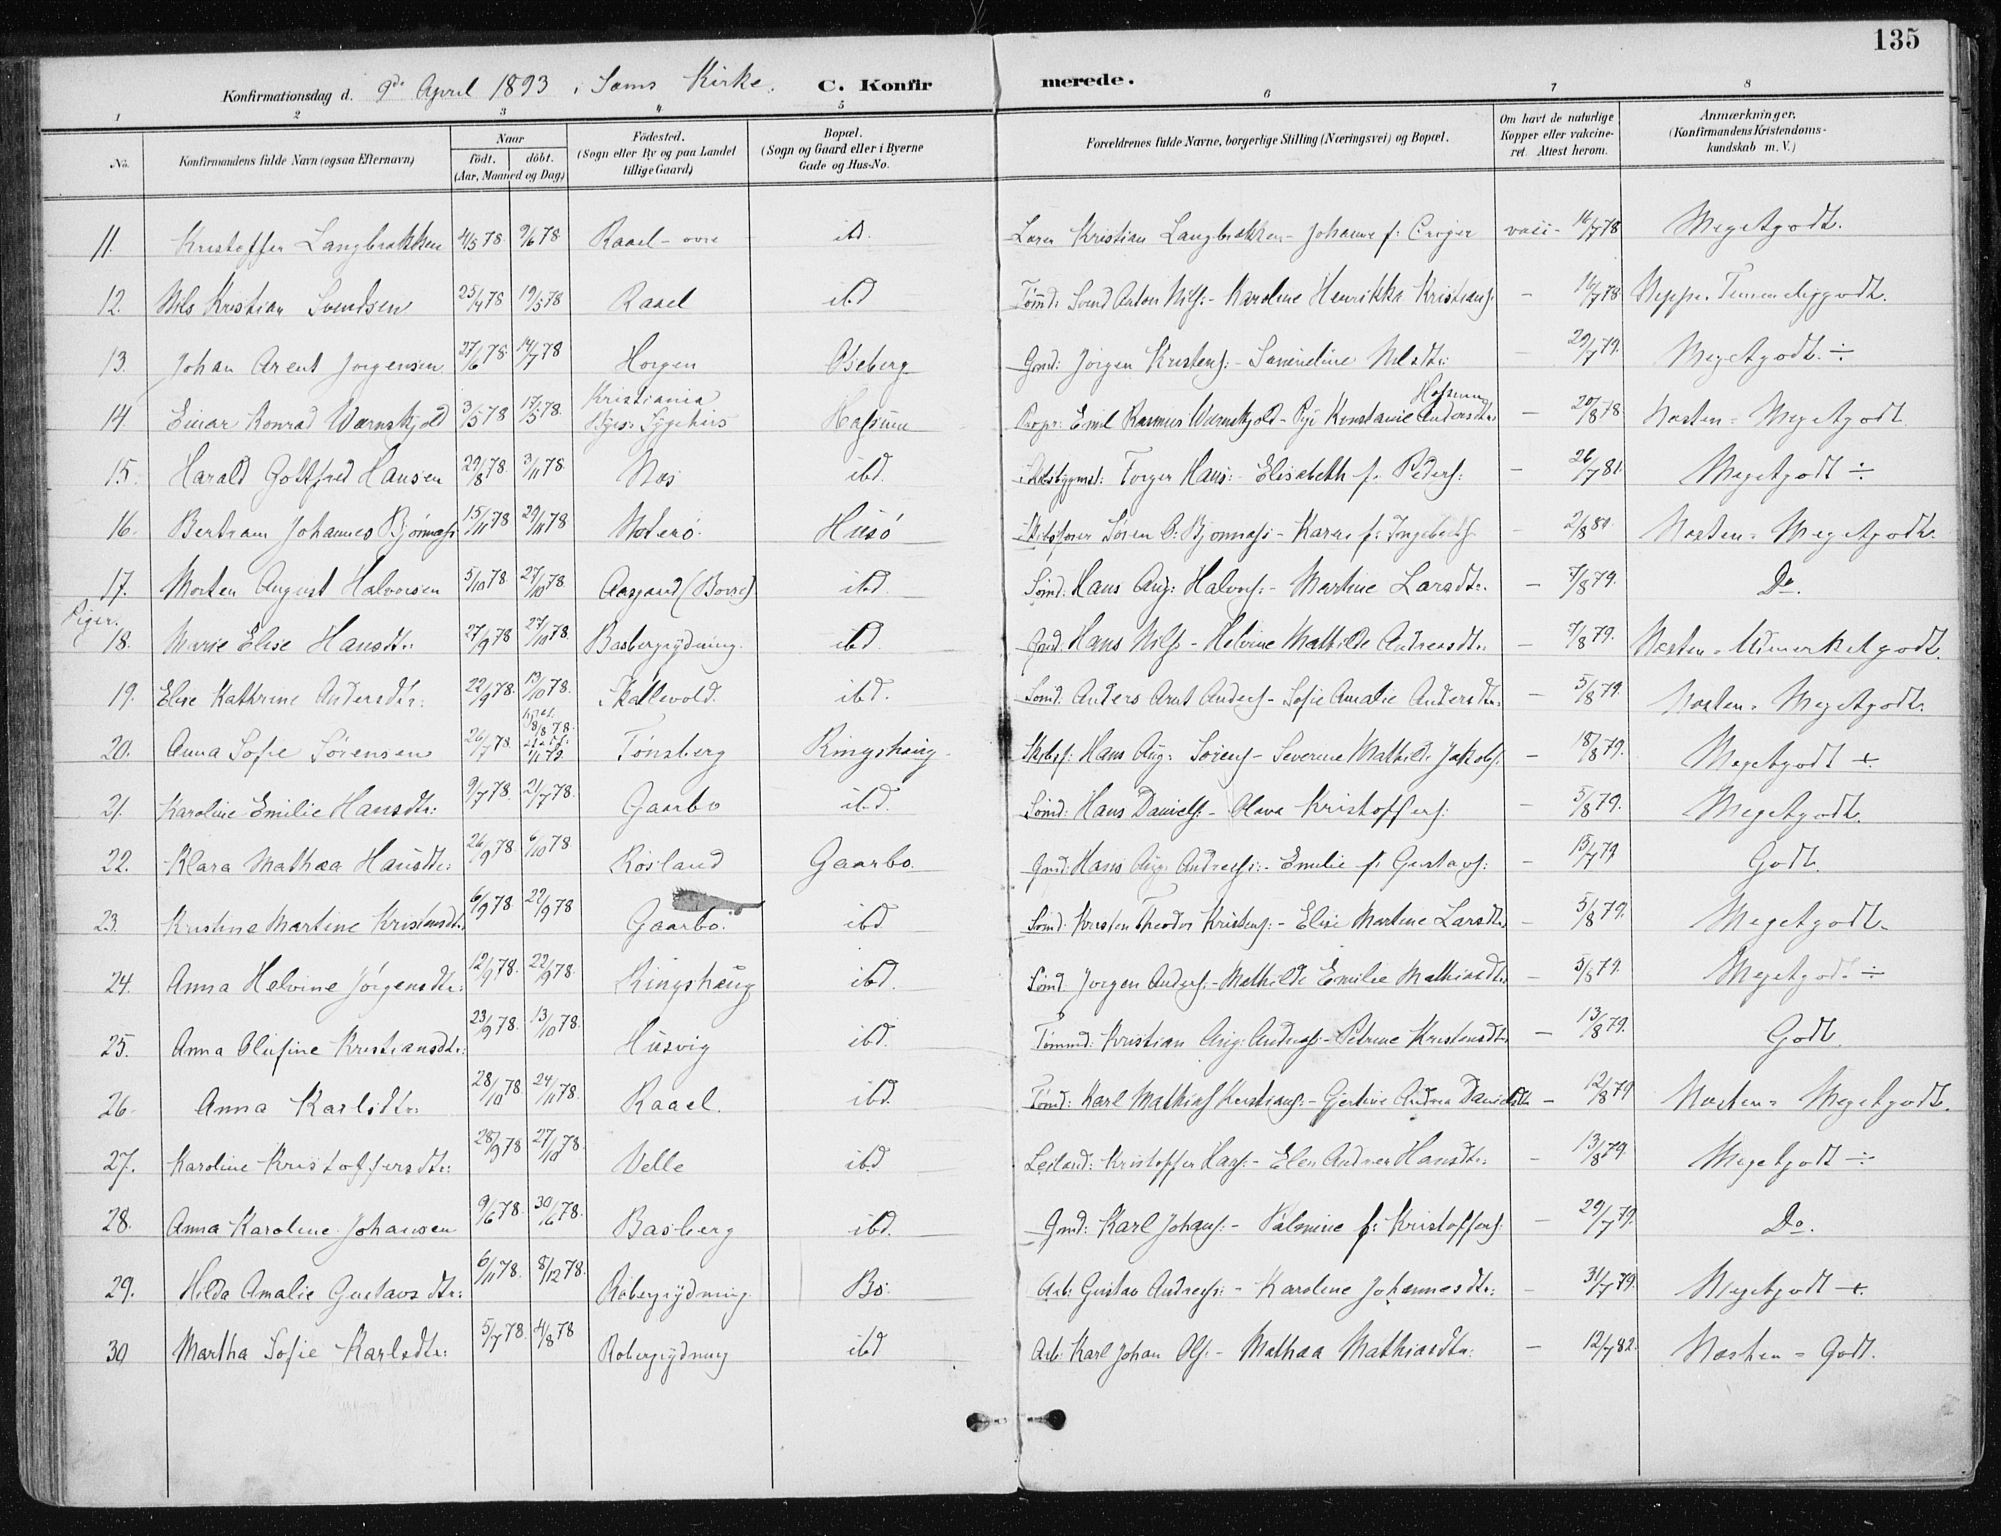 135
Konfirmationsdag d. 9de April 1893 i Sems Kirke. C. Konfirmerede.
1 2 3 4 5 6 7 8
No. Konfirmandens fulde Navn (ogsaa Efternavn) Naar födt. döbt. (Aar, Maaned og Dag) Födested. (Sogn eller By og paa Landet tillige Gaard) Bopæl. (Sogn og Gaard eller i Byerne Gade og Hus-No. Forældrenes fulde Navne, borgerlige Stilling (Næringsvei) og Bopæl. Om havt de naturlige Kopper eller vakcineret. Attest herom. Anmærkninger. (Konfirmandens Kristendomskundskab m. V.)
11. Kristoffer Langbrækken 4/5 78 9/6 78 Raael - ovre ibd. Kristian Langbrækken - Johanne f: vacc - 16/7 78 Megetgodt.
12. Nils Kristian Svendsen 25/4 78 19/5 78 Raael ibd Tømd: Svend Anton Nils: - Karoline Henrikka Kristians: — 16/7 78 Neppe. Temmeliggodt.
13. Johan Arent Jørgensen 27/6 78 14/7 78 Horgen Oseberg Gmd: Jørgen Kristens: - Severine Nilsdtr: — 29/7 79. Megetgodt ÷
14. Einar Konrad Wærnskjold 3/5 78 17/5 78. Kristiania Byes Sygehus Hassum Propr: Emil Rasmus Wærnskjold - Konstanse Andersdtr: Hassum — 20/8 78 Næsten - Megetgodt
15. Harald Gottfred Hansen 29/8 78. 3/11 78. Næs ibd. Torger Hans: - Elisabeth f. Peders: — 26/7 81. Megetgodt ÷
16. Bertram Johannes Bjønnæss: 15/11 78 29/11 78 Nøterø Husø Søren Bjønnæss: - Karen f: Ingebrets: — 2/8 80. Næsten - Megetgodt.
17. Morten August Halvorsen 5/10 78 27/10 78 Aasgaard (Borre) ibd. Sømd: Hans Aug: Halvors: - Martine Larsdtr. — 7/8 79. Do.
Piger.
18. Marie Elise Hansdtr: 27/9 78 27/10 78. Basbergrydning. ibd. Gmd: Hans Nils: - Helvine Mathilde Andreasdtr: — 7/8 79. Næsten - Udmerketgodt.
19. Elise Kathrine Andersdtr: 22/9 78. 13/10 78. Skallevold. ibd. Sømd: Anders Arnt Anders: - Sofie Amalie Andersdtr: — 5/8 79. Næsten - Megetgodt.
20. Anna Sofie Sørensen 26/7 78. 8/8 78. Tønsberg Ringshaug Hans Aug: Sørens: - Severine Mathilde Jakobs: — 18/8 79. Megetgodt ÷
21. Karoline Emilie Hansdtr: 9/7 78. 21/7 78. Gaarbo ibd. Sømd: Hans Daniels: - Olava Kristoffers: — 5/8 79. Megetgodt.
22. Klara Mathea Hansdtr: 26/9 78. 6/10 78. Røsland Gaarbo. Gmd: Hans Aug: Andreas: - Emilie f. Gustavs: — 15/7 79 Godt.
23. Kristine Martine Kristensdtr: 6/9 78. 22/9 78 Gaarbo. ibd. Sømd: Kristen Theodor Kristens: - Elise Martine Larsdtr: — 5/8 79. Megetgodt.
24. Anna Helvine Jørgensdtr: 12/9 78. 22/9 78. Ringshaug ibd. Sømd: Jørgen Anders: - Mathilde Emilie Mathiasdtr: — 5/8 79. Megetgodt ÷
25. Anna Olufine Kristiansdtr: 23/9 78. 13/10 78. Husvig ibd. Tømmd: Kristian Aug: Andreas: - Petrine Kristensdtr: — 13/8 79. Godt.
26. Anna Karlsdtr. 28/10 78 24/11 78. Raael. ibd. Tømd: Karl Mathias Kristians: - Gjertine Andrea Danielsdtr. — 12/8 79 Næsten - Megetgodt.
27. Karoline Kristoffersdtr: 28/9 78 27/10 78. Velle ibd Leiland: Kristoffer Hans: - Elen Andrea Hansdtr: — 13/8 79. Megetgodt ÷
28. Anna Karoline Johansen 9/6 78. 30/6 78. Basberg ibd. Gmd: Karl Johans: - Palmine f: Kristoffers: — 29/7 79. Do.
29. Hilda Amalie Gustavsdtr: 6/11 78. 8/12 78. Robergrydning. Bø. Arb: Gustav Andreas: - Karoline Johannesdtr: — 31/7 79. Megetgodt ÷
30 Martha Sofie Karlsdtr: 5/7 78. 4/8 78 Robergrydning ibd Arb: Karl Johan Ols: - Mathea Mathiasdtr: — 12/7 82. Næsten - Godt.